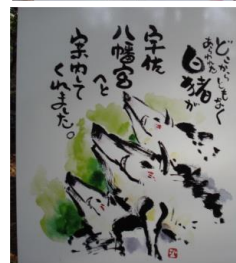 どこからともなく
あらわれた
白猪が
宇佐
八幡宮
へと
案内して
くれました。